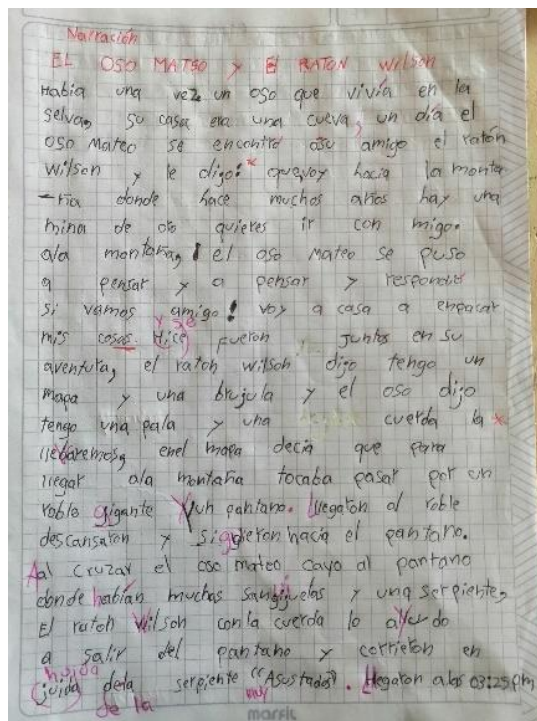 Narración
EL OSO MATEO y El RATON Wilson
Había una vez un oso que vivía en la
selva, su casa era una cueva, un día el
oso Mateo se encontró asu amigo el ratón
Wilson y le digo: quevoy hacia la monta-
-ña donde hace muchos años hay una
mina de oro quieres ir con migo.
ala montaña, ! el oso Mateo se puso
a pensar y a pensar y respondio
si vamos amigo! voy a casa a enpacar
mis cosas. y se fueron juntos en su
aventura, el raton wilson digo tengo un
mapa y una brujula y el oso digo
tengo una pala y una cuerda la
llevaremos, enel mapa decia que para
llegar ala montaña tocaba pasar por un
roble gigante y un pantano. Llegaron al roble
descansaron y siguieron hacia el pantano.
Aal cruzar el oso mateo cayo al pantano
donde habían muchas sanguijuelas y una serpiente,
El raton Wilson conla cuerda lo ayu do
a salir del pantano y corrieron en
huida
juida dela serpiente "Asustados". Llegaron a las 03:25pm
de la muy
marfil